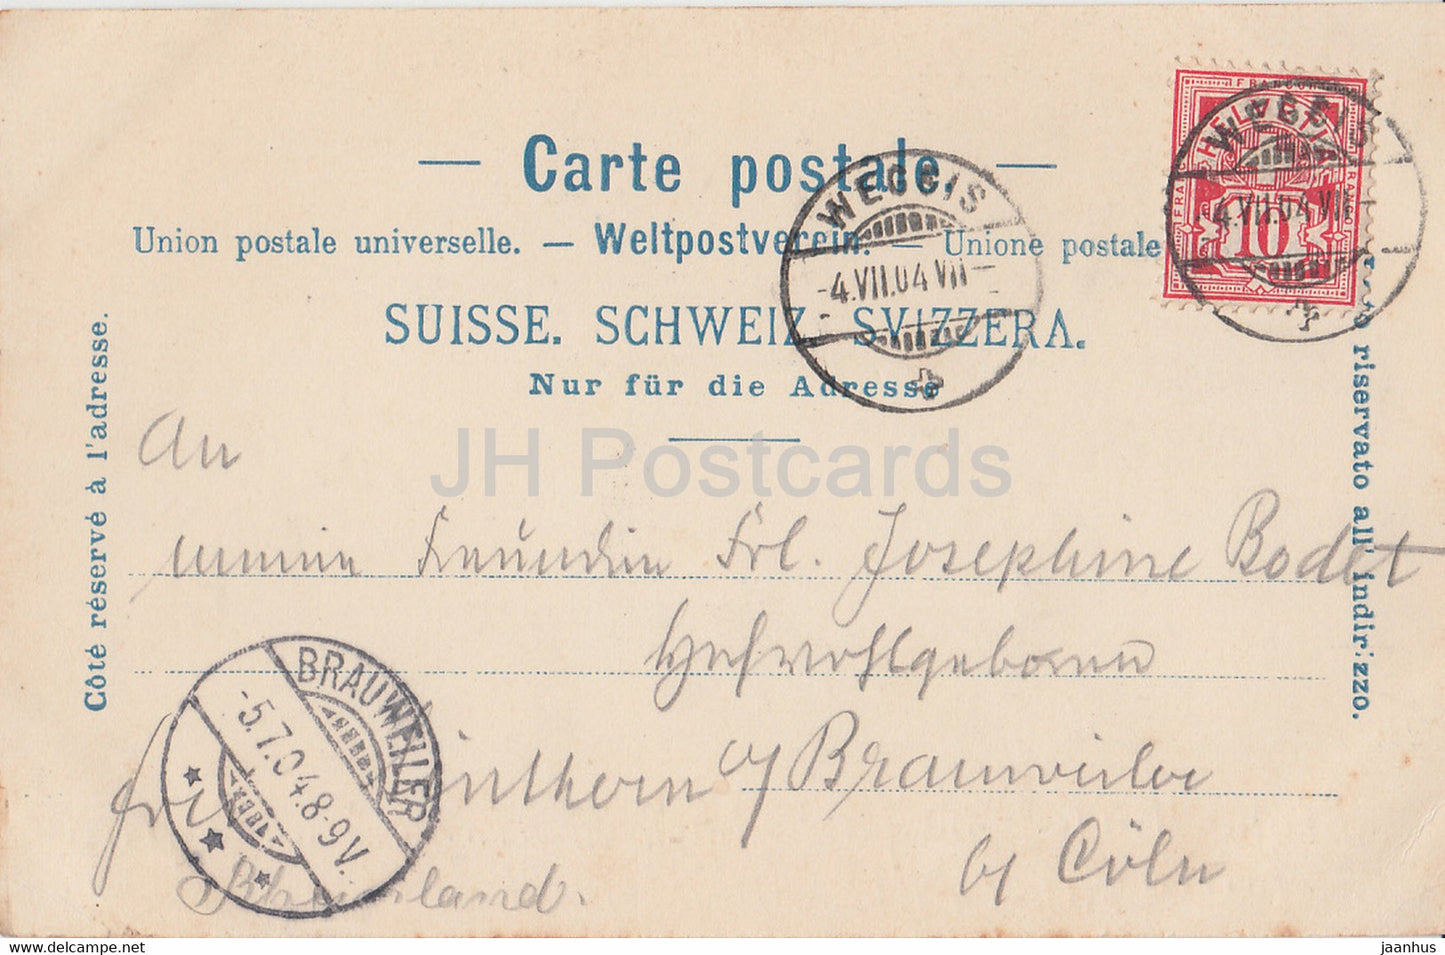 — Carte postale. —
Union postale universelle. — Weltpostverein. — Unione postale
SUISSE. SCHWEIZ. SVIZZERA.
Nur für die Adresse
Côté réservé à l'adresse.
riservato all' indirizzo.
FRANCO
HELVETIA
10
WEGGIS
-4.VII.04 VII-
WEGGIS
-4.VII.04 VII-
JH Postcards
An
meine Freundin Frl. Josephine Bodet
Hochwohlgeboren
b/ Brauweiler
b/ Cöln
Rheinland.
BRAUWEILER
-5.7.04.8-9V.
jaanhus